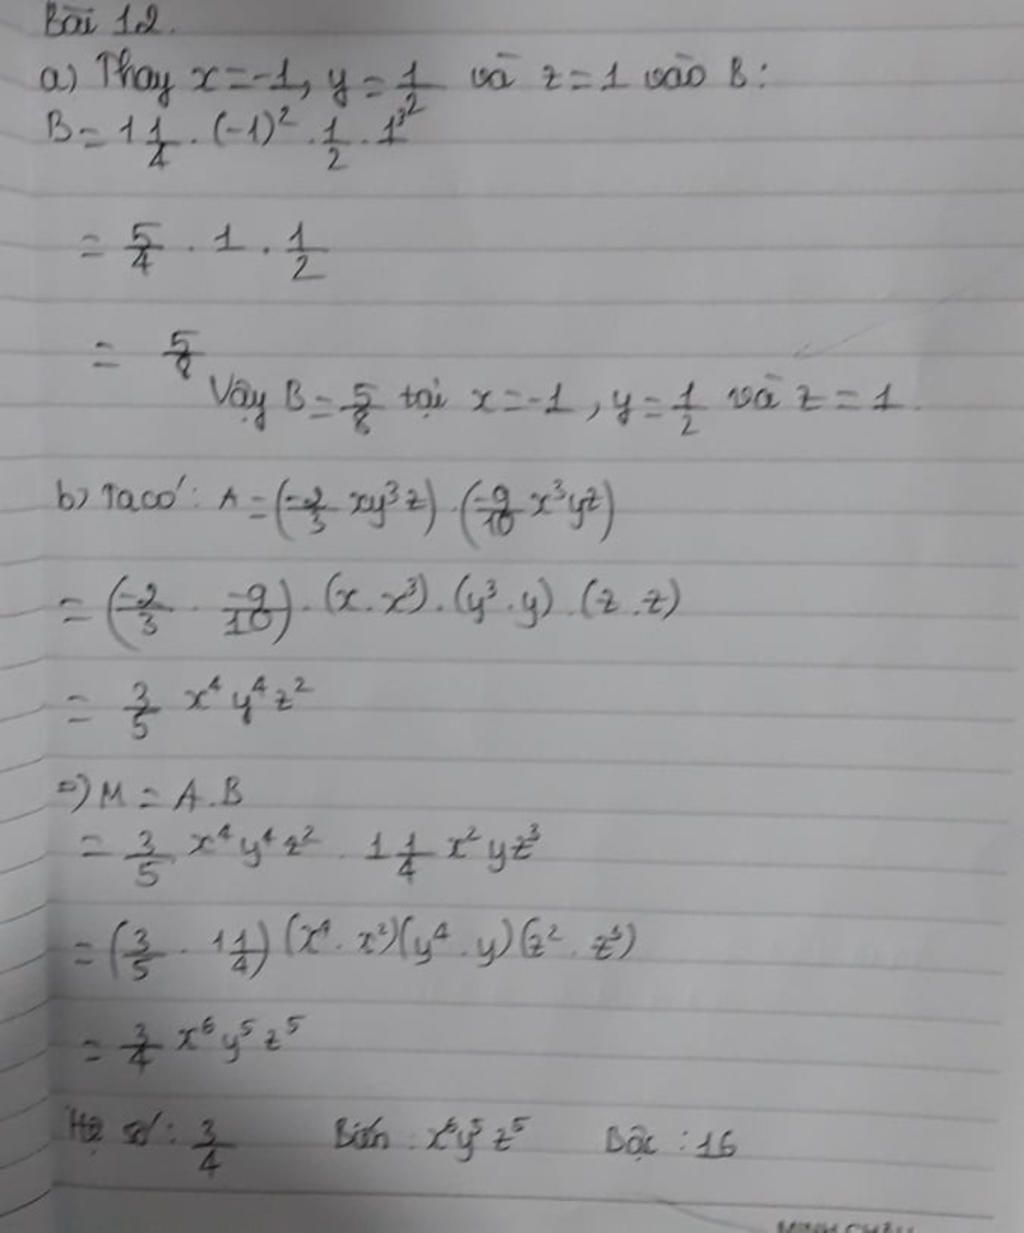 Bài 12.
a) Thay x = -1, y = 1/2 và z = 1 vào B:
B = 1 1/4 . (-1)² . 1/2 . 1³
= 5/4 . 1 . 1/2
= 5/8
Vậy B = 5/8 tại x = -1, y = 1/2 và z = 1.
b) Ta có: A = (-2/3 xy³z) . (-9/10 x³yz)
= (-2/3 . -9/10) . (x . x³) . (y³ . y) . (z . z)
= 3/5 x⁴y⁴z²
=) M = A.B
= 3/5 x⁴y⁴z² . 1 1/4 x²yz³
= (3/5 . 1 1/4) (x⁴ . x²)(y⁴ . y)(z² . z³)
= 3/4 x⁶y⁵z⁵
Hệ số: 3/4 Biến: x⁶y⁵z⁵ Bậc: 16